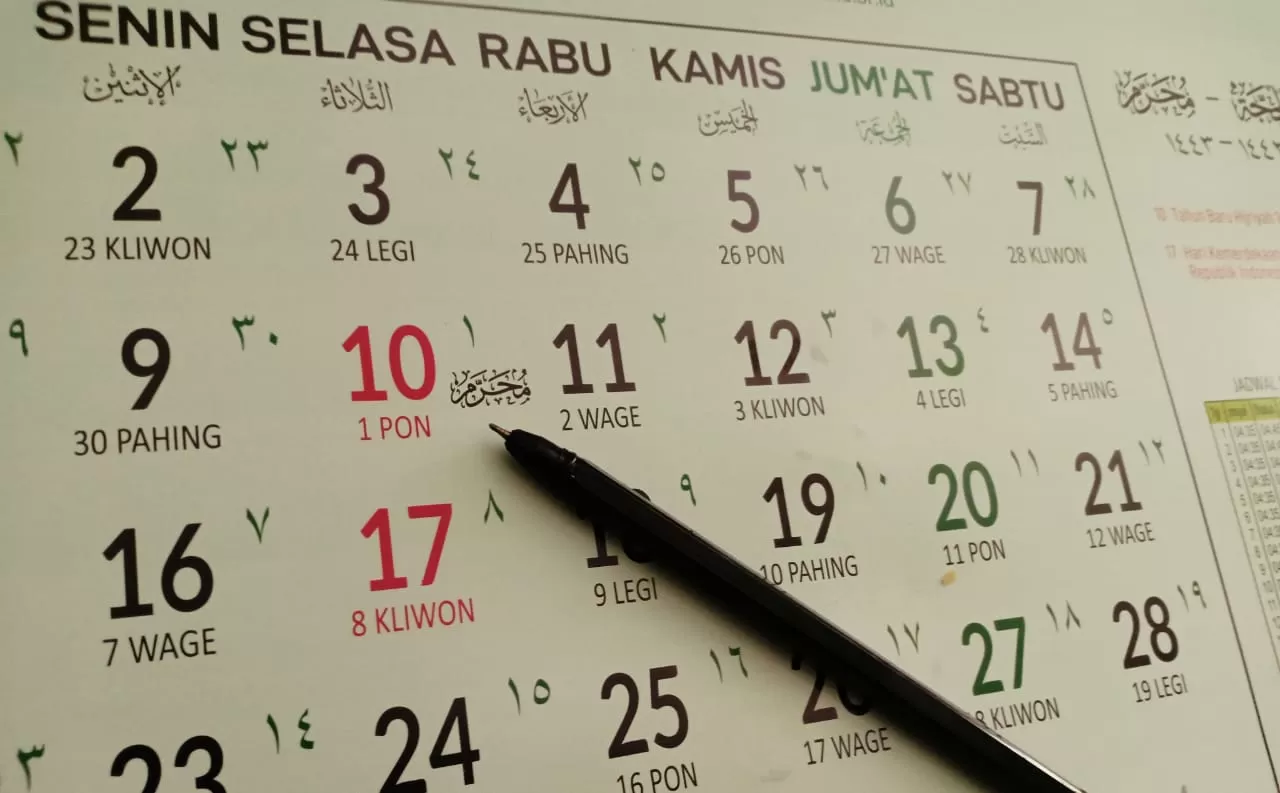 SENIN SELASA RABU KAMIS JUM'AT SABTU
الإثنين الثلاثاء الأربعاء الخميس الجمعة السبت
٢ 2 ٢٣ 3 ٢٤ 4 ٢٥ 5 ٢٦ 6 ٢٧ 7 ٢٨
23 KLIWON 24 LEGI 25 PAHING 26 PON 27 WAGE 28 KLIWON
٩ 9 ٣٠ 10 ١ 11 ٢ 12 ٣ 13 ٤ 14 ٥
مُحَرَّم
30 PAHING 1 PON 2 WAGE 3 KLIWON 4 LEGI 5 PAHING
16 ٧ 17 ٨ ٩ 19 ١٠ 20 ١١ 21 ١٢
7 WAGE 8 KLIWON 9 LEGI 10 PAHING 11 PON 12 WAGE
٣ 23 ١٤ 24 ١٥ 25 ١٦ ١٧ 27 ١٨ 28 ١٩
16 PON 17 WAGE KLIWON 19 LEGI
مُحَرَّم
١٤٤٣
10 Tahun Baru Hijriyah
17 Hari Kemerdekaan
Republik Indonesia
JADWAL